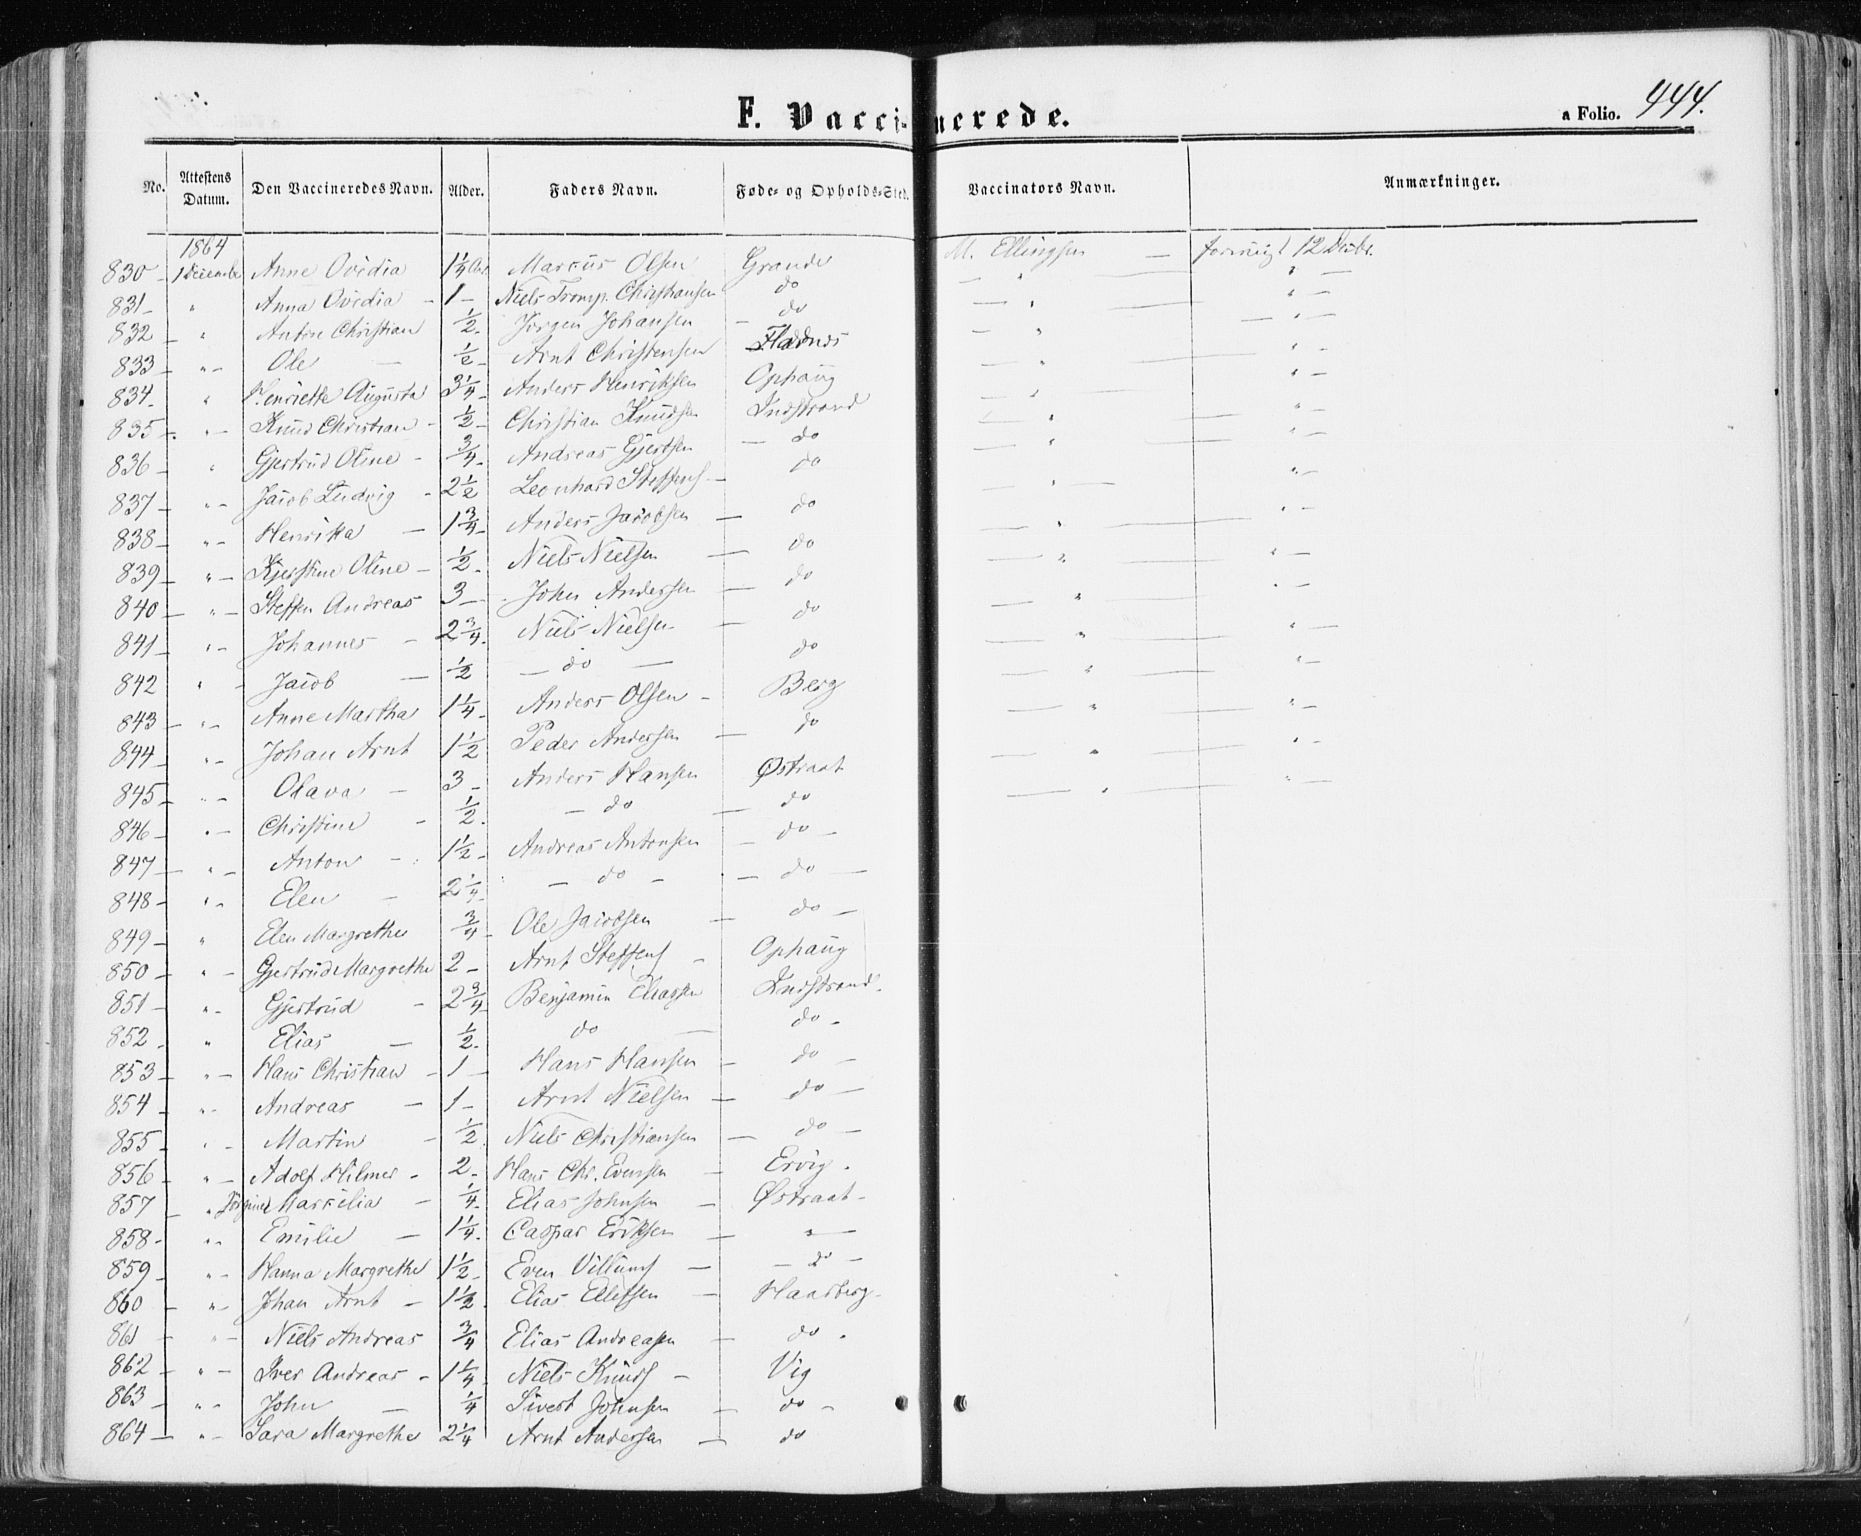 F. Vaccinerede.
a Folio. 444.
No. | Attestens Datum. | Den Vaccineredes Navn. | Alder. | Faders Navn. | Føde- og Opholds-Sted. | Vaccinators Navn. | Anmærkninger.
1864
830 - 1 December Anne Ovidia 1 1/4 Marcus Olsen Grande M. Ellingsen - 12 Decbr.
831 - " Anna Ovidia - 1 - Niels Tromp. Christiansen do - " - " -
832 - " Anton Christian 1/2 - Jørgen Johansen - do - " - " -
833 - " - Ole - 1/2 - Arnt Christensen Fladnes - " - " -
834 - " Henriette Augusta 3 1/4 - Anders Henriksen Ophaug - " - " -
835 - " - Knud Christian - 1/2 - Christian Knudsen Indstrand - " - " -
836 - " Gjertrud Oline - 3/4 - Andreas Gjertsen - do - " - " -
837 - " - Jacob Ludvig - 2 1/2 Leonhard Steffens - do - " - " -
838 - " - Henrikka - 1 3/4 - Anders Jacobsen - do - " -
839 - " - Kjerstine Oline - 1/2 - Niels Nielsen - do - " - " -
840 - " - Steffen Andreas 3 - John Andersen - do - " - " -
841 - " - Johannes - 2 3/4 - Niels Nielsen - do - " - " -
842 " - Jacob - 1/2 - do - do - " - " -
843 - " - Anne Martha 1 1/4 - Anders Olsen - Berg - " - " -
844 - " - Johan Arnt 1 1/2 Peder Andersen - do - " - " -
845 - " - Olava - 3 - Anders Hansen Østraat - " - " -
846 - " - Christine - 1/2 - do - do
847 - " - Anton - 1 1/2 - Andreas Antonsen - do -
848 - " - Elen - 2 1/4 - do - - do -
849 - " Elen Margrethe 3/4 - Ole Jacobsen - do -
850 - " - Gjertrud Margrethe 2 - Arnt Steffens - Ophaug
851 - " - Gjertrud - 2 3/4 - Benjamin Eliassen Indstrand.
852 - " Elias - 1/2 - do - do -
853 - " - Hans Christian - 1 - Hans Hansen - do -
854 - " - Andreas - 1 - Arnt Nielsen - do -
855 - " - Martin - 1/2 Niels Christiansen - do -
856 - " - Adolf Hilmer - 2 - Hans Chr. Evensen - Ervig.
857 - " Jørgine Marselia - 1/4 - Elias Johnsen - Østraat -
858 - " - Emilie - 1 1/4 - Caspar Eriksen - " -
859 - " - Hanna Margrethe 1 1/2 - Even Villums - - do -
860 - " - Johan Arnt - 1 1/2 - Elias Ellefsen - Haarberg -
861 - " - Niels Andreas 3/4 Elias Andreasen - do.
862 - " - Iver Andreas - 1 1/4 - Niels Knuds - Vig
863 - " - John - 1/4 Sivert Johnsen - do -
864 - " - Sara Margrethe 2 1/4 Arnt Andersen - do